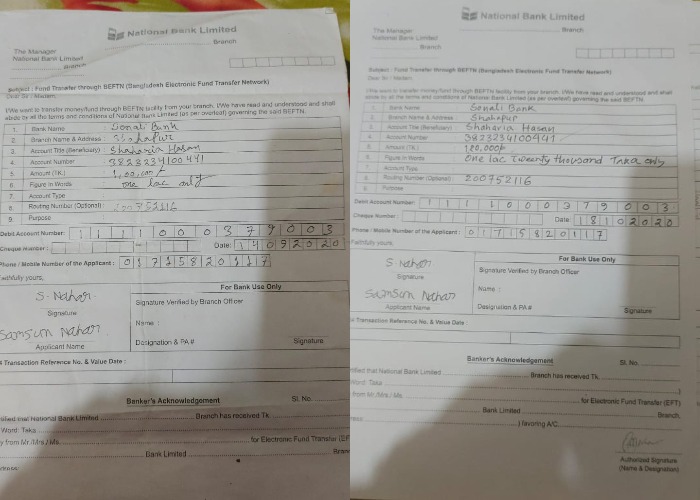 National Bank Limited
Branch
The Manager
National Bank Limited
Branch
Subject : Fund Transfer through BEFTN (Bangladesh Electronic Fund Transfer Network)
Dear Sir / Madam,
I/We want to transfer money/fund through BEFTN facility from your branch. I/We have read and understood and shall
abide by all the terms and conditions of National Bank Limited (as per overleaf) governing the said BEFTN.
1. Bank Name Sonali Bank
2. Branch Name & Address : Shahapur
3. Account Title (Beneficiary) : Shaharia Hasan
4. Account Number 3823234100441
5. Amount (TK.) 1,00,000/-
6. Figure in Words one lac only
7. Account Type
8. Routing Number (Optional) : 200752116
9. Purpose
Debit Account Number: 1 1 1 1 0 0 0 3 7 9 0 0 3
Cheque Number: Date: 1 4 0 9 2 0 2 0
Phone / Mobile Number of the Applicant : 0 1 7 1 5 8 2 0 1 1 7
Faithfully yours,
For Bank Use Only
S. Nahar
Signature
Signature Verified by Branch Officer
Samsun Nahar
Name :
Applicant Name
Designation & PA #
Signature
Transaction Reference No. & Value Date :
Banker's Acknowledgement
Sl. No.
National Bank Limited Branch has received Tk.
Word: Taka
y from Mr./Mrs / Ms. for Electronic Fund Transfer
Bank Limited
National Bank Limited
Branch
The Manager
National Bank Limited
Branch
Subject : Fund Transfer through BEFTN (Bangladesh Electronic Fund Transfer Network)
Dear Sir / Madam,
I/We want to transfer money/fund through BEFTN facility from your branch. I/We have read and understood and shall
abide by all the terms and conditions of National Bank Limited (as per overleaf) governing the said BEFTN.
1. Bank Name Sonali Bank
2. Branch Name & Address : Shahapur
3. Account Title (Beneficiary) Shaharia Hasan
4. Account Number 3823234100441
5. Amount (TK.) 1,20,000/-
6. Figure in Words one lac Twenty thousand Taka only
7. Account Type
8. Routing Number (Optional) 200752116
9. Purpose
Debit Account Number: 1 1 1 1 0 0 0 3 7 9 0 0 3
Cheque Number: Date 1 8 1 0 2 0 2 0
Phone / Mobile Number of the Applicant : 0 1 7 1 5 8 2 0 1 1 7
Faithfully yours,
For Bank Use Only
S Nahar
Signature
Signature Verified by Branch Officer
Name :
Samsun Nahar
Applicant Name
Designation & PA #
Signature
Transaction Reference No. & Value Date :
Banker's Acknowledgement
Sl. No.
that National Bank Limited Branch has received Tk.
Word: Taka
from Mr./Mrs./Ms. for Electronic Fund Transfer (EFT)
Bank Limited Branch,
favoring A/C.
Authorized Signature
(Name & Designation)